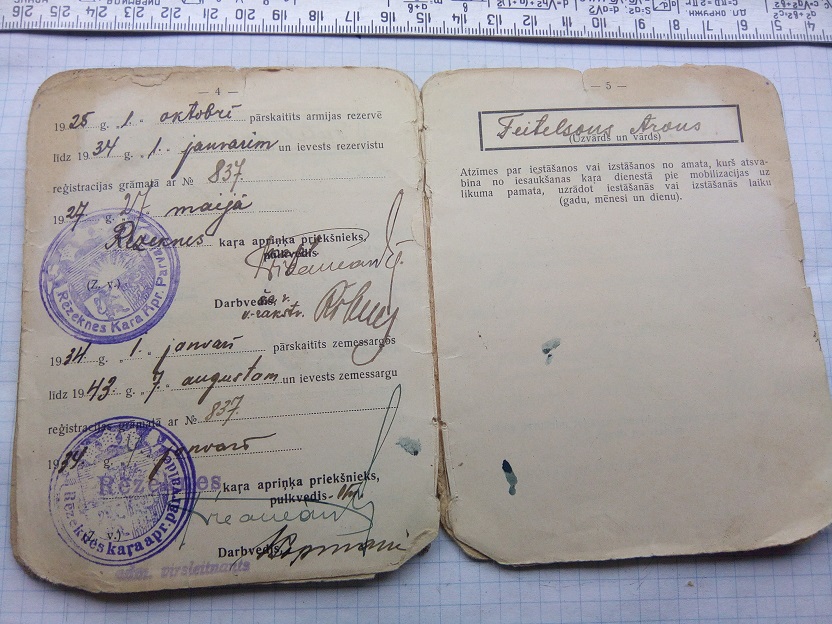 — 4 —
1925 g. 1. oktobrī pārskaitīts armijas rezervē
līdz 1934 g. 1. janvarim un ievests rezervistu
reģistracijas grāmatā ar № 837.
1927 g. 27. maijā
Rēzeknes kaŗa apriņķa priekšnieks,
pulkvedis
(Z. v.)
Rēzeknes Kaŗa Apr. Pārval
Darbvedis,
v.
v.-rakstv.
1934 g. 1. janvarī pārskaitīts zemessargos
līdz 1943 g. 7. augustam un ievests zemessargu
reģistracijas grāmatā ar № 837.
1934 g. janvarī
Rēzeknes kaŗa apriņķa priekšnieks,
pulkvedis-
(Z. v.)
Rēzeknes kaŗa apr. pārvalde
Darbvedis,
adm. virsleitnants
— 5 —
Feitelsons Arons
(Uzvārds un vārds)
Atzīmes par iestāšanos vai izstāšanos no amata, kuŗš atsva-
bina no iesaukšanas kaŗa dienestā pie mobilizacijas uz
likuma pamata, uzrādot iestāšanās vai izstāšanās laiku
(gadu, mēnesi un dienu).